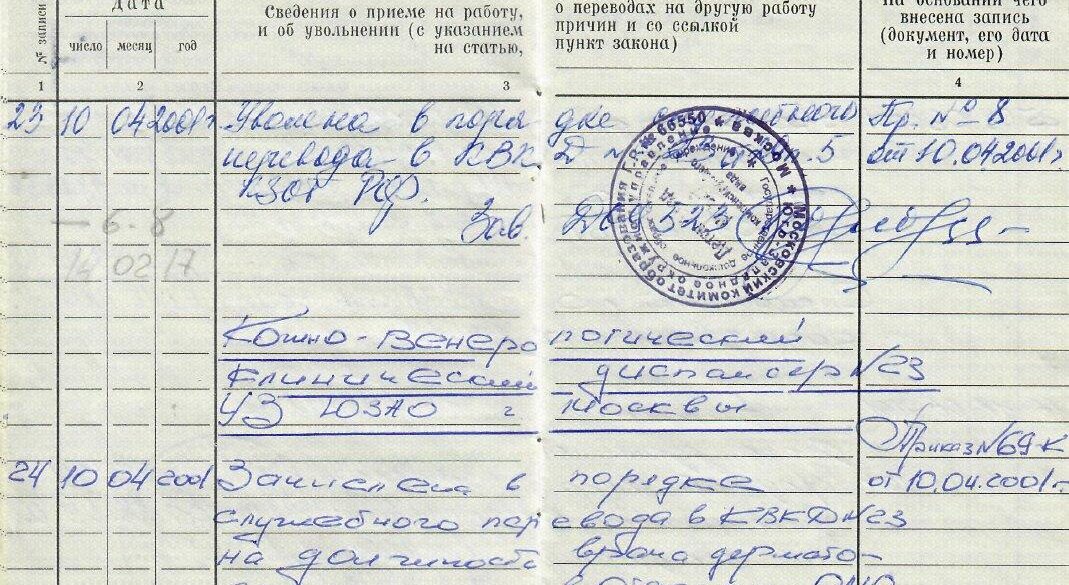 № записи
Дата
число месяц год
Сведения о приеме на работу,
и об увольнении (с указанием
на статью,
о переводах на другую работу
причин и со ссылкой
пункт закона)
На основании чего
внесена запись
(документ, его дата
и номер)
1 2 3 4
23 10 04 2001г Уволена в порядке Пр. № 8
перевода в КВК Д 5 от 10.04.2001г
КЗОТ РФ.
Зав. ДОУ
- 6 - 8
14 02 17
Московский комитет образования
Москва
Кожно-Венерологический
клинический диспансер №23
УЗ ЮЗАО г Москвы
Приказ №69-К
24 10 04 2001 Зачислена в порядке от 10.04.2001г
служебного перевода в КВКД №23
на должность врача дермато-